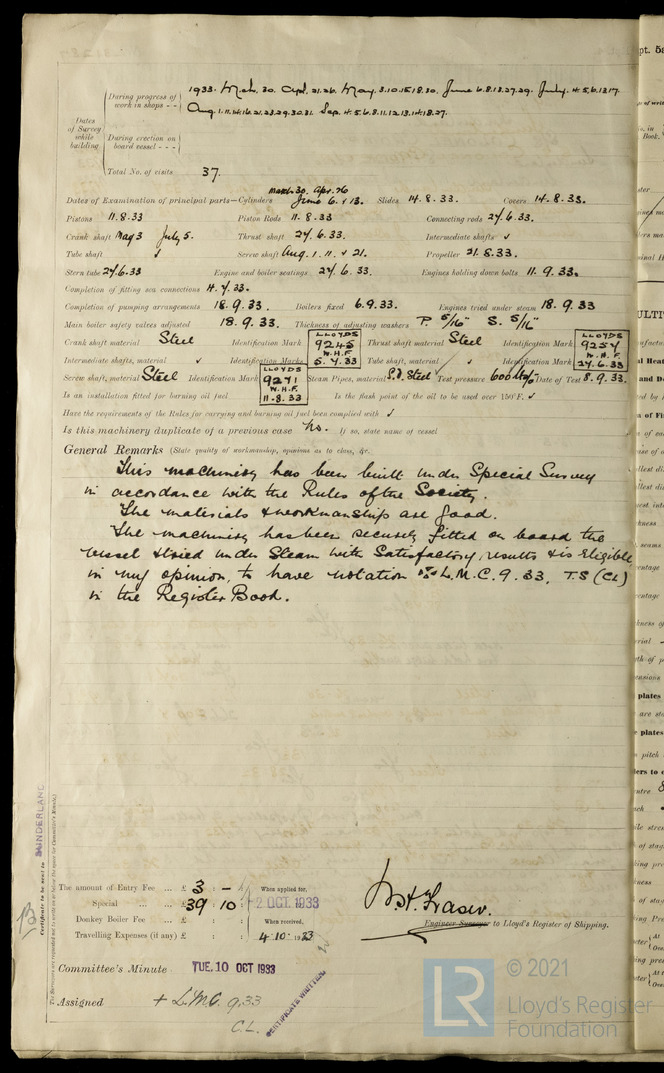 During progress of work in shops - - 1933. Mch. 30. Apl. 21. 26. May. 3. 10. 15. 18. 30. June 6. 8. 13. 27. 29. July. 4. 5. 6. 13. 17.
Aug. 1. 11. 14. 16. 21. 23. 29. 30. 31. Sep. 4. 5. 6. 8. 11. 12. 13. 14. 18. 27.
Dates of Survey while building
During erection on board vessel - - -
Total No. of visits 37.
March. 30. Apr. 26
Dates of Examination of principal parts—Cylinders June 6. & 13. Slides 14. 8. 33. Covers 14. 8. 33.
Pistons 11. 8. 33 Piston Rods 11. 8. 33 Connecting rods 27. 6. 33.
Crank shaft May 3 July 5. Thrust shaft 27. 6. 33. Intermediate shafts ✓
Tube shaft ✓ Screw shaft Aug. 1. 11. & 21. Propeller 21. 8. 33.
Stern tube 27. 6. 33 Engine and boiler seatings 27. 6. 33. Engines holding down bolts 11. 9. 33.
Completion of fitting sea connections 17. 7. 33.
Completion of pumping arrangements 18. 9. 33. Boilers fixed 6. 9. 33. Engines tried under steam 18. 9. 33
Main boiler safety valves adjusted 18. 9. 33. Thickness of adjusting washers P. 5/16" S. 5/16"
Crank shaft material Steel Identification Mark LLOYDS 9245 W.H.F. 5. 7. 33 Thrust shaft material Steel Identification Mark LLOYDS 9257 W.H.F. 27. 6. 33
Intermediate shafts, material ✓ Identification Marks Tube shaft, material ✓ Identification Mark
Screw shaft, material Steel Identification Mark LLOYDS 9271 W.H.F. 11. 8. 33 Steam Pipes, material S.D. Steel Test pressure 600 Date of Test 8. 9. 33.
Is an installation fitted for burning oil fuel Is the flash point of the oil to be used over 150°F. ✓
Have the requirements of the Rules for carrying and burning oil fuel been complied with ✓
Is this machinery duplicate of a previous case No. If so, state name of vessel
General Remarks (State quality of workmanship, opinions as to class, &c.
This machinery has been built under Special Survey
in accordance with the Rules of the Society.
The materials & workmanship are good.
The machinery has been securely fitted on board the
vessel & tried under Steam with Satisfactory results & is Eligible,
in my opinion, to have notation L.M.C. 9. 33. T.S (CL)
in the Register Book.
SUNDERLAND
Certificate to be sent to
The amount of Entry Fee ... £ 3 : - : When applied for,
Special ... £ 39 : 10 : 2 OCT. 1933
Donkey Boiler Fee ... £ : : When received,
Travelling Expenses (if any) £ : : 4. 10. 1933
W.H. Fraser.
Engineer Surveyor to Lloyd's Register of Shipping.
Committee's Minute TUE. 10 OCT 1933
Assigned + L.M.C. 9. 33
C.L.
CERTIFICATE WRITTEN
LR
© 2021
Lloyd's Register
Foundation